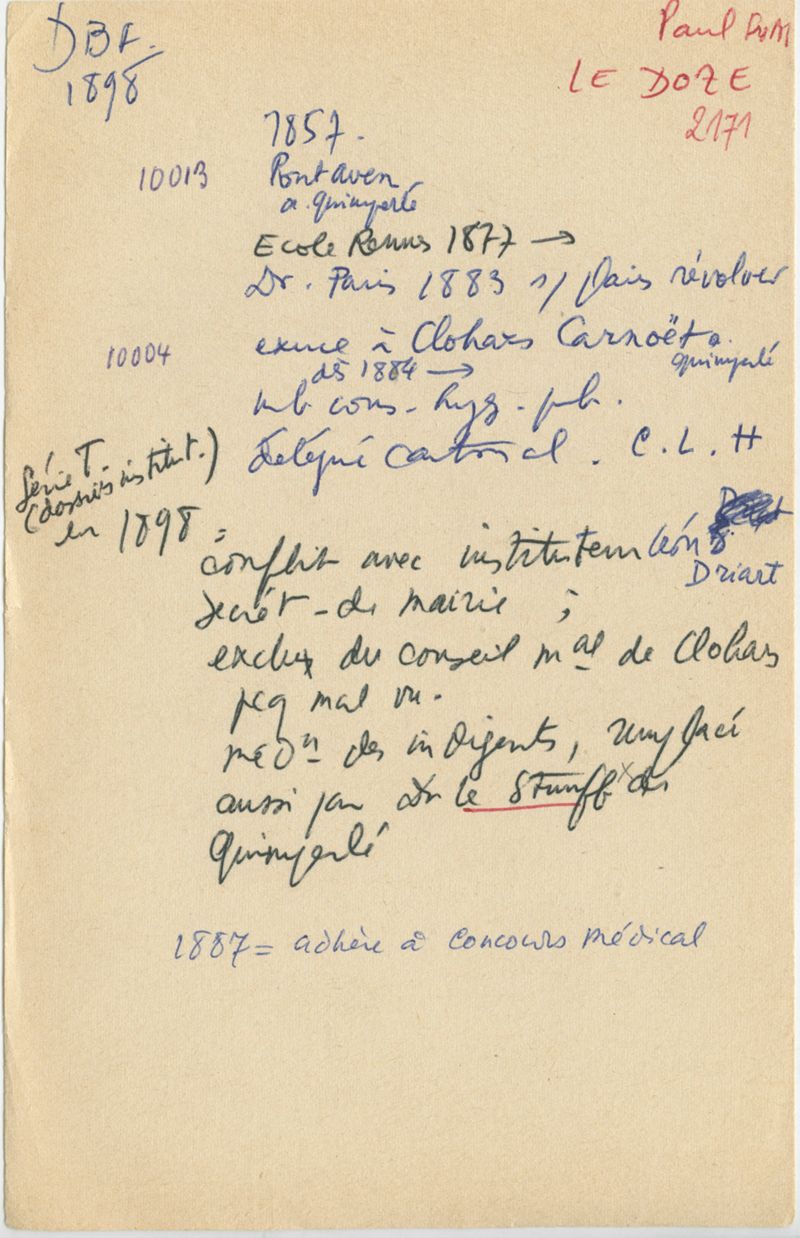 DBF.
1898
Paul
LE DOZE
2171
1857.
10013
Pont aven
a. Quimperlé
Ecole Rennes 1877 →
Dr. Paris 1883 s/ plaies révolver
10004
exerce à Clohars Carnoët a.
Quimperlé
dès 1884 →
mb cons. hyg. pb.
délégué cantonal. C. L. H
Série T.
(dossiers institut.)
en 1898 :
conflit avec instituteur Léon
Driart
secrét. de mairie ;
exclu du conseil mal de Clohars
pcq mal vu.
médn des indigents, remplacé
aussi par Dr Le Stunff de
Quimperlé
1887 = adhère à concours médical